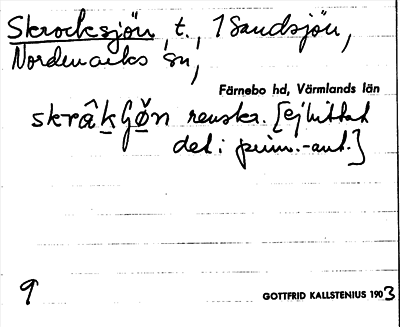 Skrocksjön, t., 1 Sandsjön,
Nordmarks sn,
Färnebo hd, Värmlands län
skrâkʃø̌n renskr. [ej hittat
det i prim.-ant.]
9
GOTTFRID KALLSTENIUS 1903